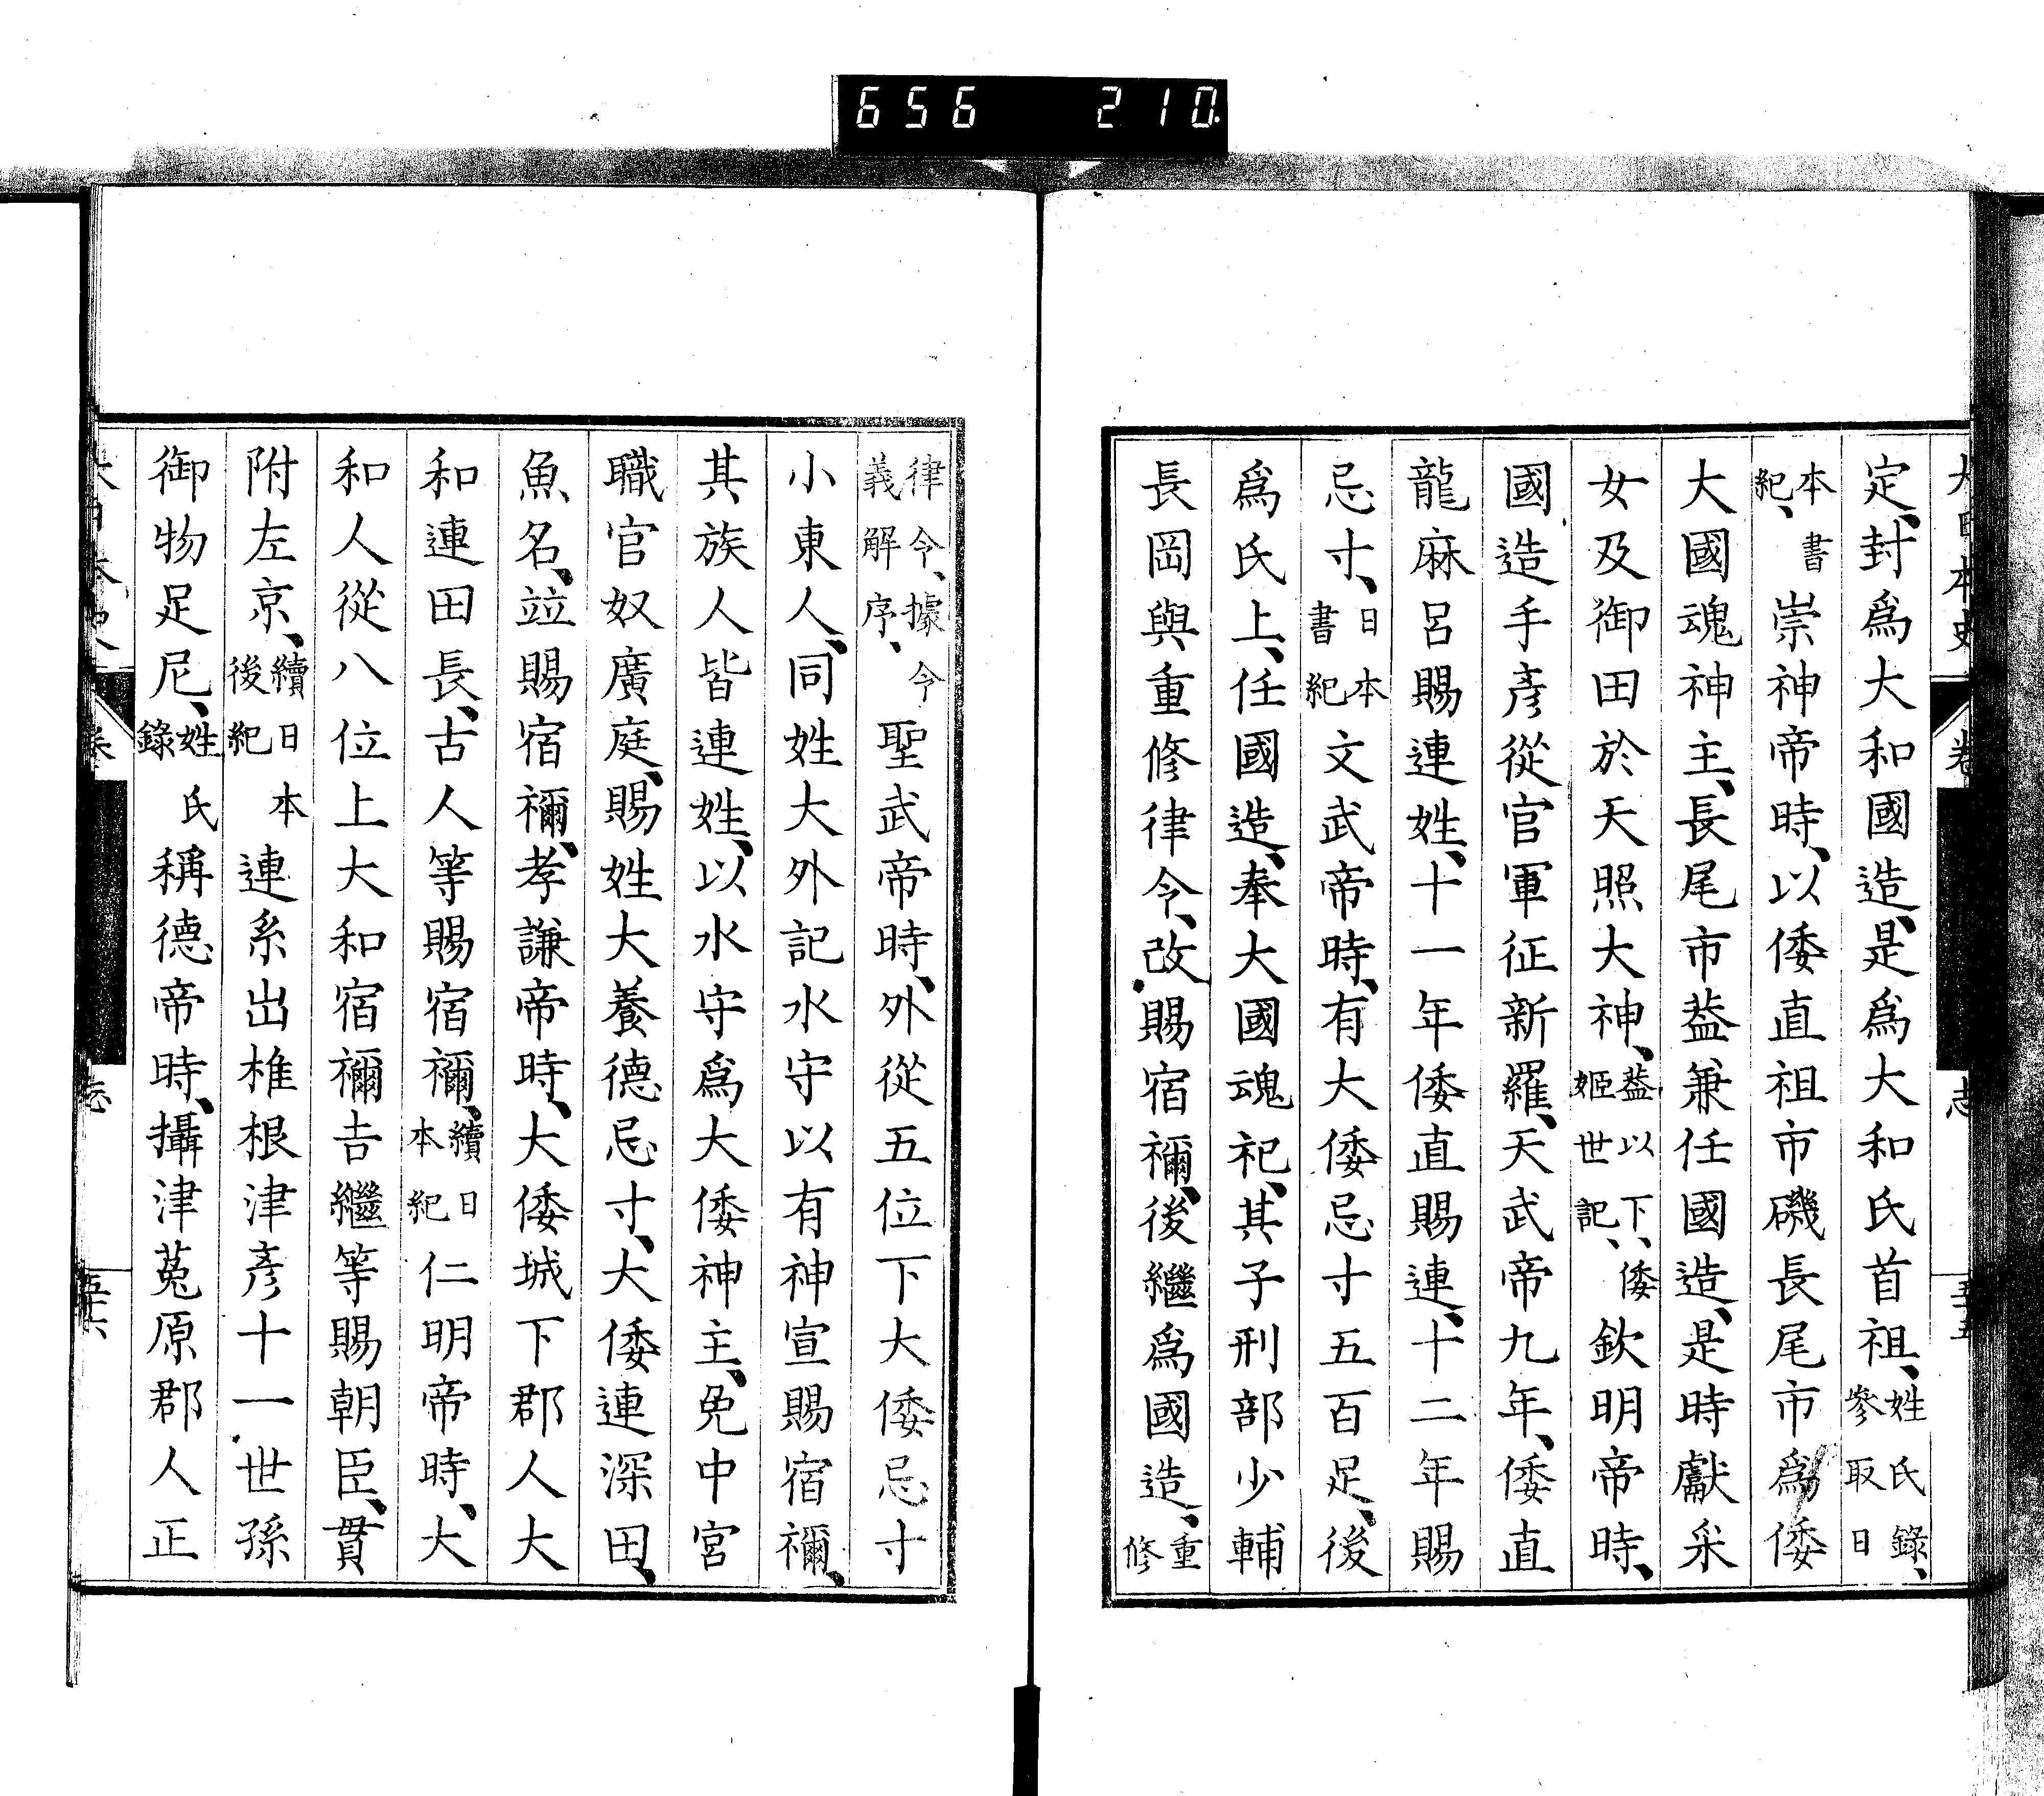 656 210
定、封爲大和國造、是爲大和氏首祖、姓氏錄、參取日
本書紀、崇神帝時、以倭直祖市磯長尾市爲倭
大國魂神主、長尾市葢兼任國造、是時獻采
女及御田於天照大神、葢以下、倭姬世記、欽明帝時、
國造手彥從官軍征新羅、天武帝九年、倭直
龍麻呂賜連姓、十一年倭直賜連、十二年賜
忌寸、日本書紀文武帝時、有大倭忌寸五百足、後
爲氏上、任國造、奉大國魂祀、其子刑部少輔
長岡與重修律令、改賜宿禰、後繼爲國造、重修
律令、據令義解序、聖武帝時、外從五位下大倭忌寸
小東人、同姓大外記水守以有神宣賜宿禰、
其族人皆連姓、以水守爲大倭神主、免中宮
職官奴廣庭、賜姓大養德忌寸、大倭連深田、
魚名、竝賜宿禰、孝謙帝時、大倭城下郡人大
和連田長、古人等賜宿禰、續日本紀仁明帝時、大
和人從八位上大和宿禰吉繼等賜朝臣、貫
附左京、續日本後紀連系出椎根津彥十一世孫
御物足尼、姓氏錄稱德帝時、攝津菟原郡人正